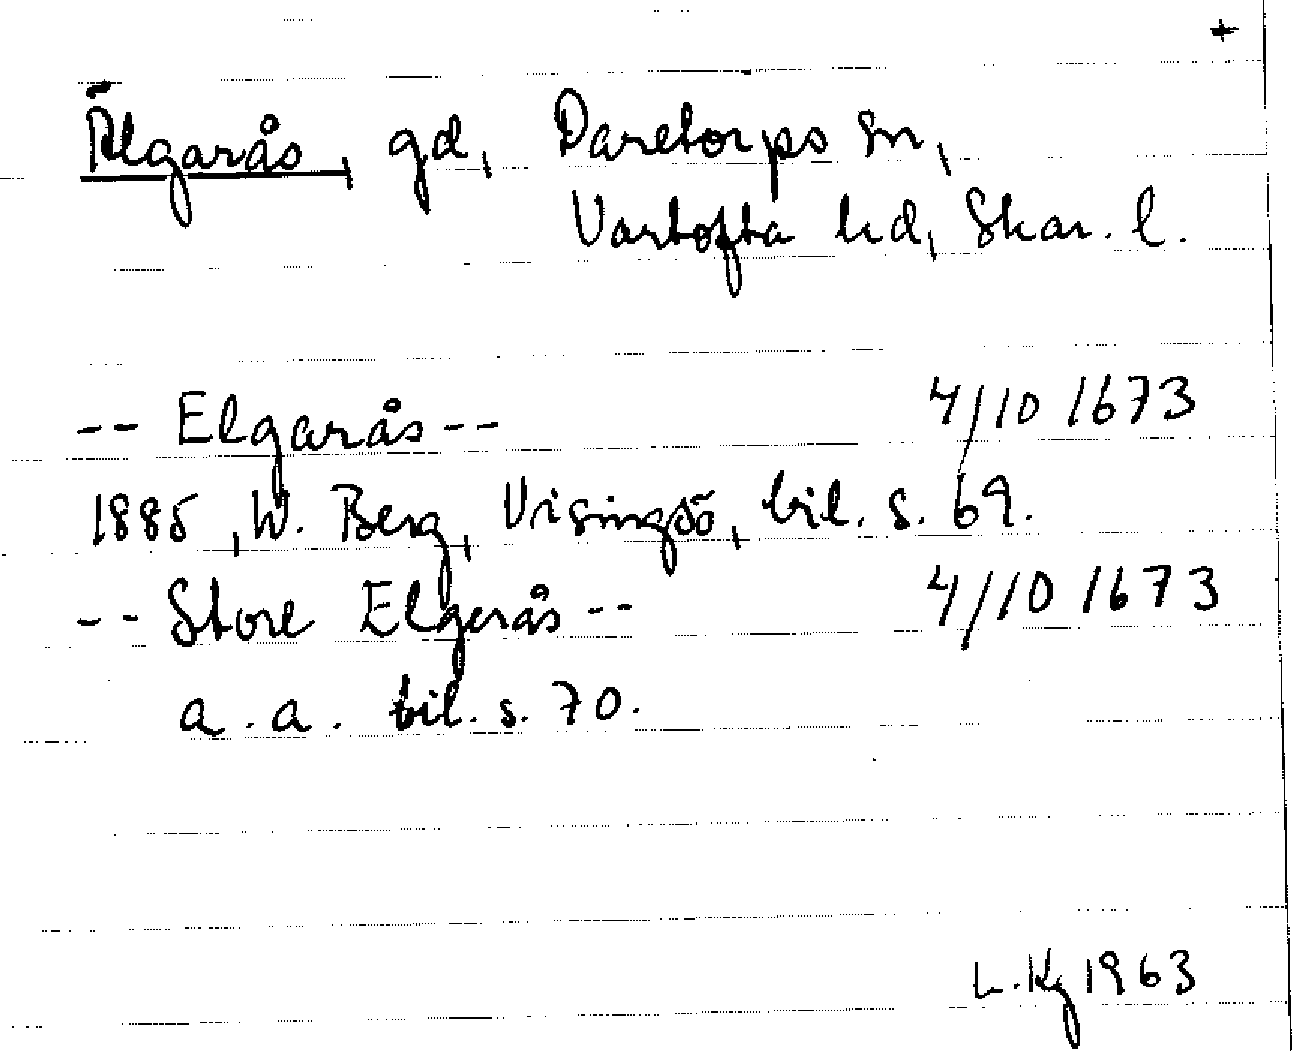 +
Älgarås, gd, Daretorps sn,
Vartofta hd, Skar. l.
-- Elgarås -- 4/10 1673
1885, W. Berg, Visingsö, bil. s. 69.
-- Store Elgerås -- 4/10 1673
a. a. bil. s. 70.
L. Kg 1963